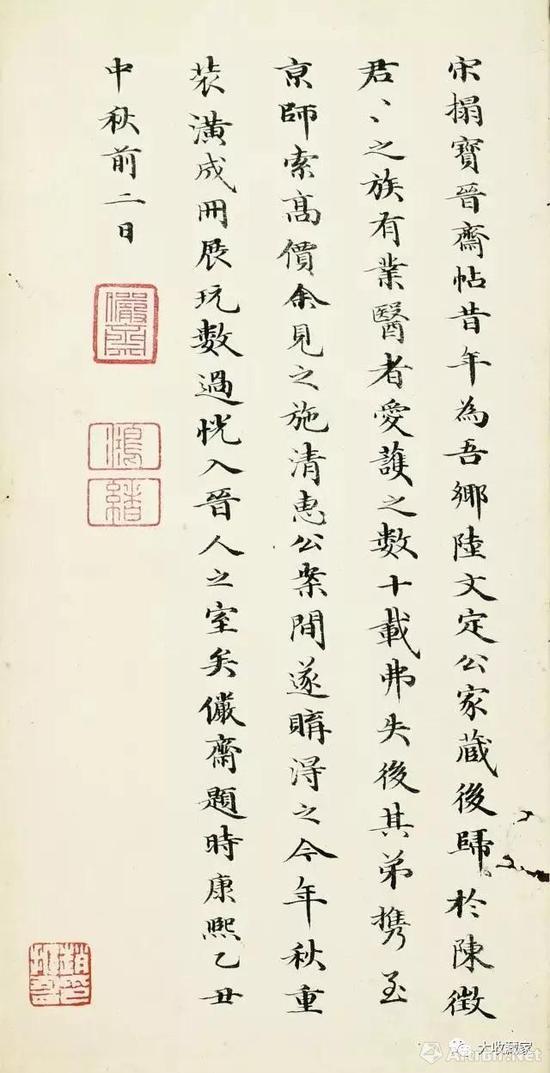 宋搨寶晉齋帖昔年為吾鄉陸文定公家蔵後歸於陳徵
君〻之族有業醫者愛護之數十載弗失後其弟攜至
京師索高價余見之施清惠公案間遂購得之今年秋重
装潢成冊展玩數過恍入晉人之室矣儼齋題時康熙乙丑
中秋前二日
儼齋
鴻緒
大收藏家
Artron.Net